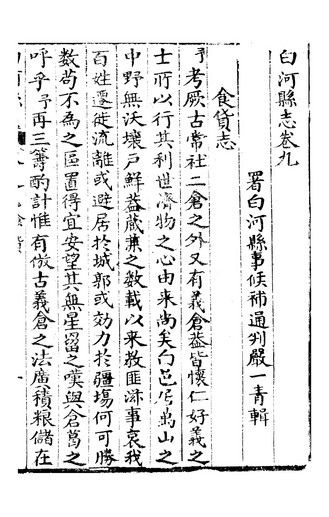 白河縣志卷九
署白河縣事候補通判嚴一青輯
食貨志
予考厥古常社二倉之外又有義倉葢皆懷仁好義之
士所以行其利世濟物之心由來尚矣白邑居萬山之
中野無沃壤戶鮮葢蔵兼之數載以來教匪滋事哀我
百姓遷徙流離或避居於城郭或効力於疆場何可勝
數苟不為之區置得宜安望其無星留之嘆與倉葛之
呼乎予再三籌酌計惟有倣古義倉之法廣積粮儲在